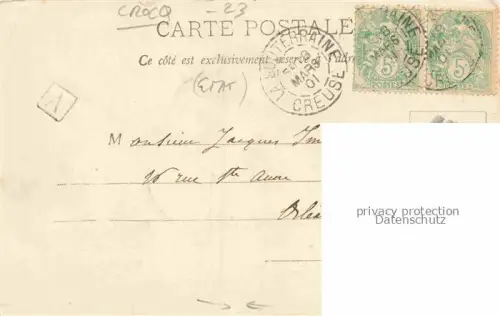 CROCQ - 23
CARTE POSTALE
Ce côté est exclusivement réservé à l'adr
(ETAT)
LA SOUTERRAINE
MARS
01
CREUSE
RAINE
5
5
A
Monsieur Jacques
16 rue Ste Anne
Orléa
privacy protection
Datenschutz